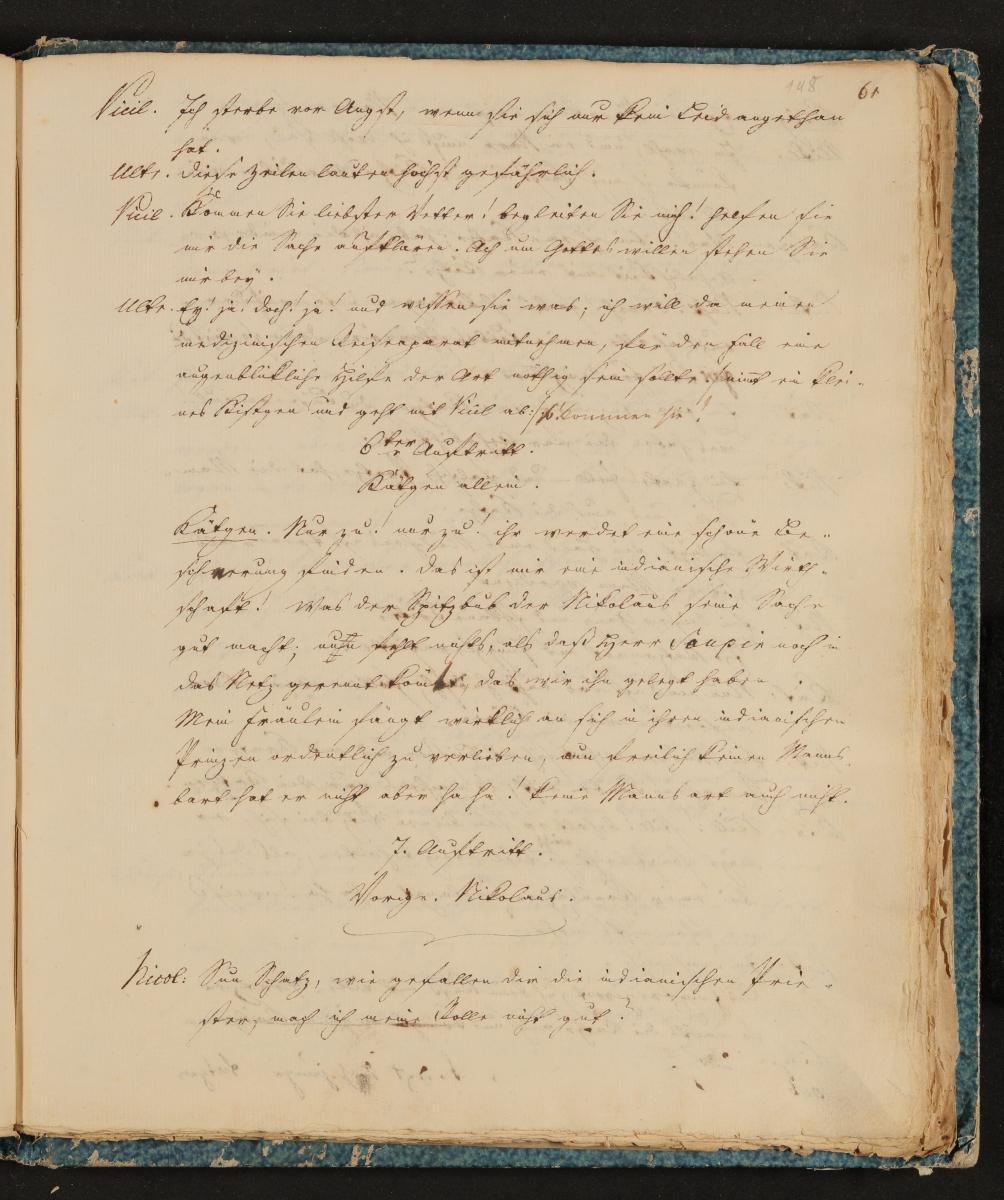 148
61
Vicil. Ich sterbe vor Angst, wenn sie sich nur kein Leid angethan
hat.
Ultr. Diese Zeilen lauten höchst gefährlich.
Vicil. Kommen Sie liebster Vetter! begleiten Sie mich! helfen sie
mir die Sache aufklären. Ach um Gottes willen stehen Sie
mir bey.
Ultr. Ey! ja! doch! ja! und wissen sie was; ich will da meinen
medizinischen Reiseaparat mitnehmen, für den Fall eine
augenblikliche Hilfe der Art nöthig sein sollte. /: nimt ein klei-
nes Kistgen und geht mit Vicil ab :/ Kommen sie!
6ter Auftritt.
Kätgen allein.
Kätgen. Nur zu! nur zu! ihr werdet eine schöne Be-
scherung finden. Das ist mir eine indianische Wirth-
schaft! Was der Spitzbub der Nikolaus seine Sache
gut macht; nun fehlt nichts, als daß Herr Soupir noch in
das Netz gerennt das wir ihm gelegt haben.
Mein Fräulein fängt wirklich an sich in ihren indianischen
Prinzen ordentlich zu verlieben, nun freilich keinen Manns
bart hat er nicht aber ha ha! keine Mannsart auch nicht.
7. Auftritt.
Vorige. Nikolaus.
Nicol: Nun Schatz, wie gefallen dir die indianischen Prie-
ster, mach ich meine Rolle nicht gut?